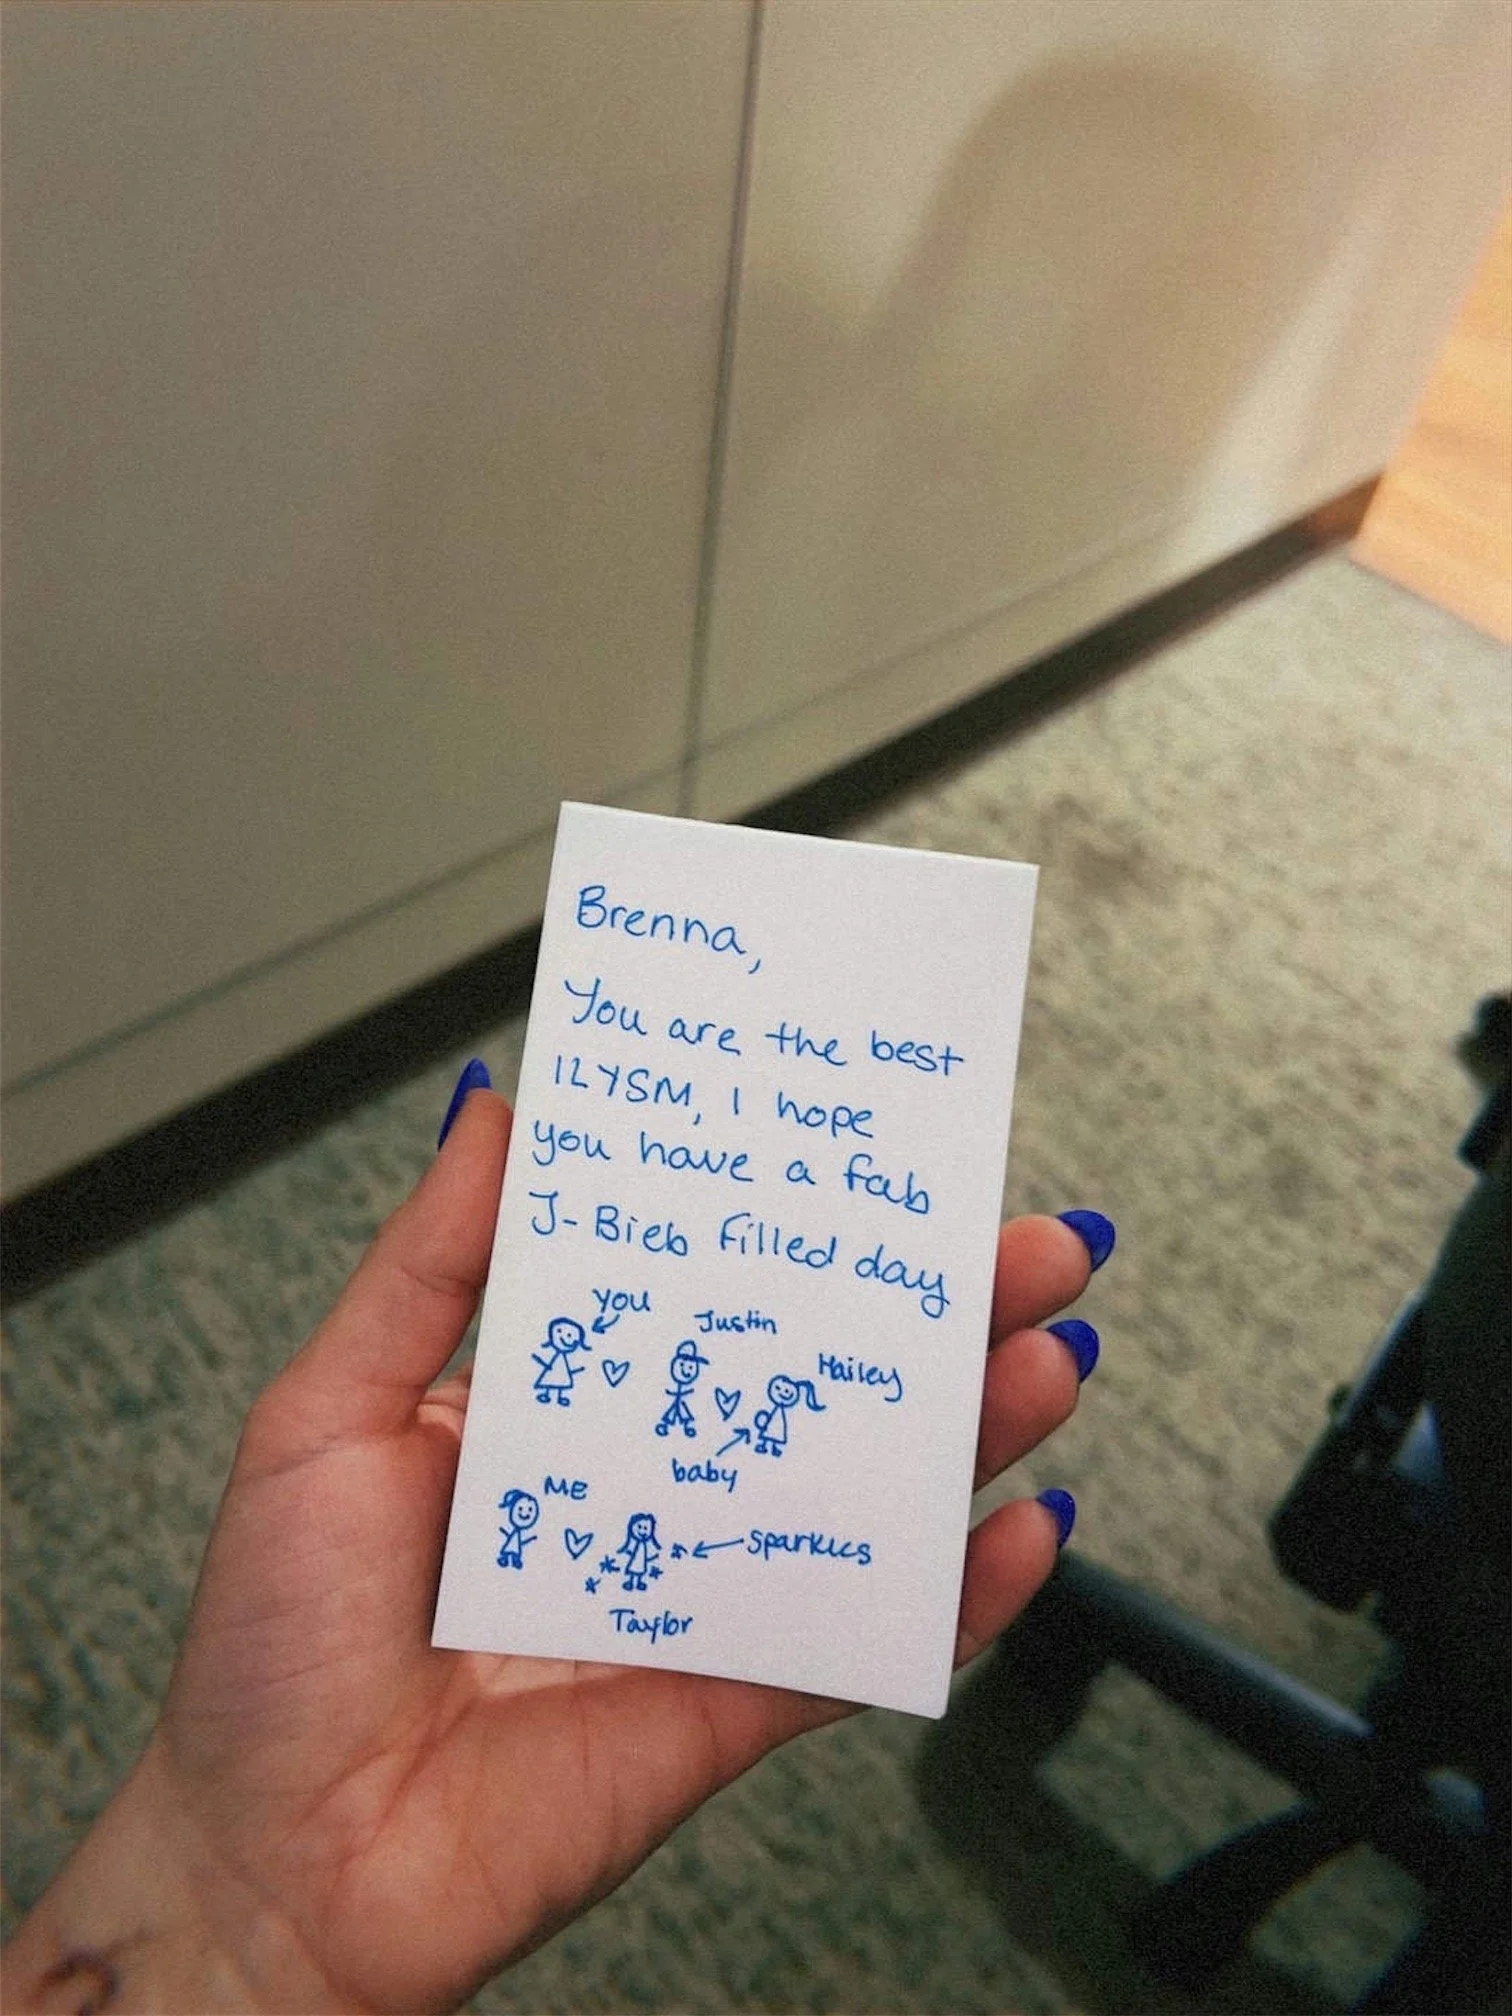 Brenna,
You are the best
ILYSM, I hope
you have a fab
J-Bieb filled day
you
Justin
Hailey
baby
ME
sparkles
Taylor